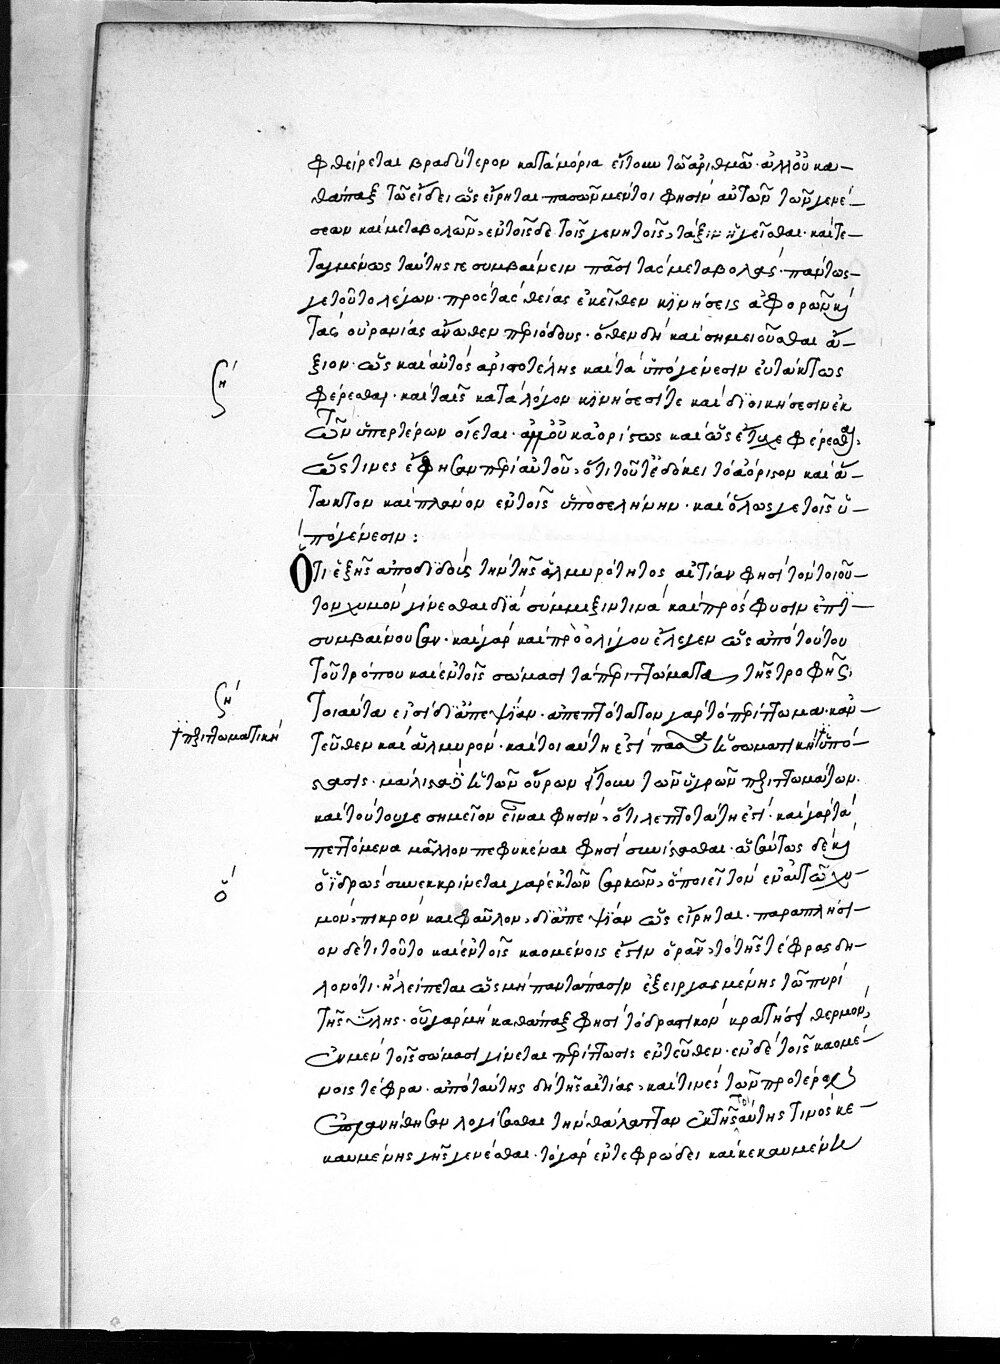 φθείρεται βραδύτερον κατὰ μόρια εἴτουν τῷ ἀριθμῷ· ἀλλ' οὐ κα-
θάπαξ τῷ εἴδει ὡς εἴρηται· πασῶν μέντοι φησὶν αὐτῶν τῶν γενέ-
σεων καὶ μεταβολῶν, ἐν τοῖς δὲ τοῖς γενητοῖς, τάξιν ἡγεῖσθαι· καὶ τε-
ταγμένως ταύτης τε συμβαίνειν πᾶσι τὰς μεταβολάς· πάντως
γε τοῦτο λέγων· πρὸς τὰς θείας ἐκεῖθεν κινήσεις ἀφορῶν καὶ
τὰς οὐρανίας ἄνωθεν περιόδους· ὅθεν δὴ καὶ σημειοῦσθαι ἄ-
ξιον· ὡς καὶ αὐτὸς ἀριστοτέλης καὶ τὰ ὑπὸ γένεσιν εὐτάκτως
φέρεσθαι· καὶ ταῖς κατὰ λόγον κινήσεσί τε καὶ διοικήσεσιν ἐκ
τῶν ὑπερτέρων οἴεται· ἀλλ' οὐκ ἀορίστως καὶ ὡς ἔτυχε φέρεσθαι,
ὥς τινες ἔφησαν περὶ αὐτοῦ, ὅτι τοῦτ' ἐδόκει τὸ ἀόριστον καὶ ἄ-
τακτον καὶ πλάνον ἐν τοῖς ὑπὸ σελήνην· καὶ ὅλως γε τοῖς ὑ-
πὸ γένεσιν:
Ὅτι ἑξῆς ἀποδιδοὺς τὴν τῆς ἁλμυρότητος αἰτίαν φησὶ τὸν τοιοῦ-
τον χυμὸν γίνεσθαι διὰ σύμμιξιν τινὰ καὶ πρὸς φύσιν ἐπι-
συμβαίνουσαν· καὶ γὰρ καὶ πρὸ ὀλίγου ἔλεγεν ὡς ἀπὸ τούτου
τοῦ τρόπου καὶ ἐν τοῖς σώμασι τὰ περιττώματα τῆς τροφῆς,
τοιαῦτα εἰσὶ δι' ἀπεψίαν· ἀπεπτότατον γὰρ τὸ περίττωμα· κἀν-
τεῦθεν καὶ ἁλμυρόν· καί τοι αὕτη ἐστὶ πᾶσα ἡ σωματικὴ ὑπό-
στασις· μάλιστα δὲ ἡ τῶν οὔρων ἤτουν τῶν ὑγρῶν περιττωμάτων·
καὶ τούτου γε σημεῖον εἶναι φησίν, ὅτι λεπτοτάτη ἐστί· καὶ γὰρ τὰ
πεττόμενα μᾶλλον πεφυκέναι φησὶ συνίστασθαι· ὡσαύτως δὲ καὶ
ὁ ἱδρώς συνεκκρίνεται γὰρ ἐκ τῶν σαρκῶν, ὃ ποιεῖ τὸν ἐν αὐτῷ χυ-
μὸν, πικρὸν καὶ φαῦλον, δι' ἀπεψίαν ὡς εἴρηται· παραπλήσι-
ον δέ τι τοῦτο καὶ ἐν τοῖς καομένοις ἔστιν ὁρᾶν, τὸ τῆς τέφρας δη-
λονότι· ἣ λείπεται ὡς μὴ παντάπασιν ἐξειργασμένης τῷ πυρὶ
τῆς ὕλης· οὗ γὰρ μὴ καθάπαξ φησὶ τὸ δραστικὸν κρατήσῃ θερμόν,
ἐν μὲν τοῖς σώμασι γίνεται περίττωσις ἐντεῦθεν· ἐν δὲ τοῖς καομέ-
νοις τέφρα· ἀπὸ ταύτης δὴ τῆς αἰτίας, καὶ τινὲς τῶν προτέρων
ὡρμήθησαν λογίσασθαι τὴν θάλατταν ἐκ τῆς τοιαύτης τινὸς κε-
καυμένης γῆς γενέσθαι· τὸ γὰρ ἐν τεφρώδει καὶ κεκαυμένῃ
ση´
ση´
ἡ περιττωματική
ὅ´